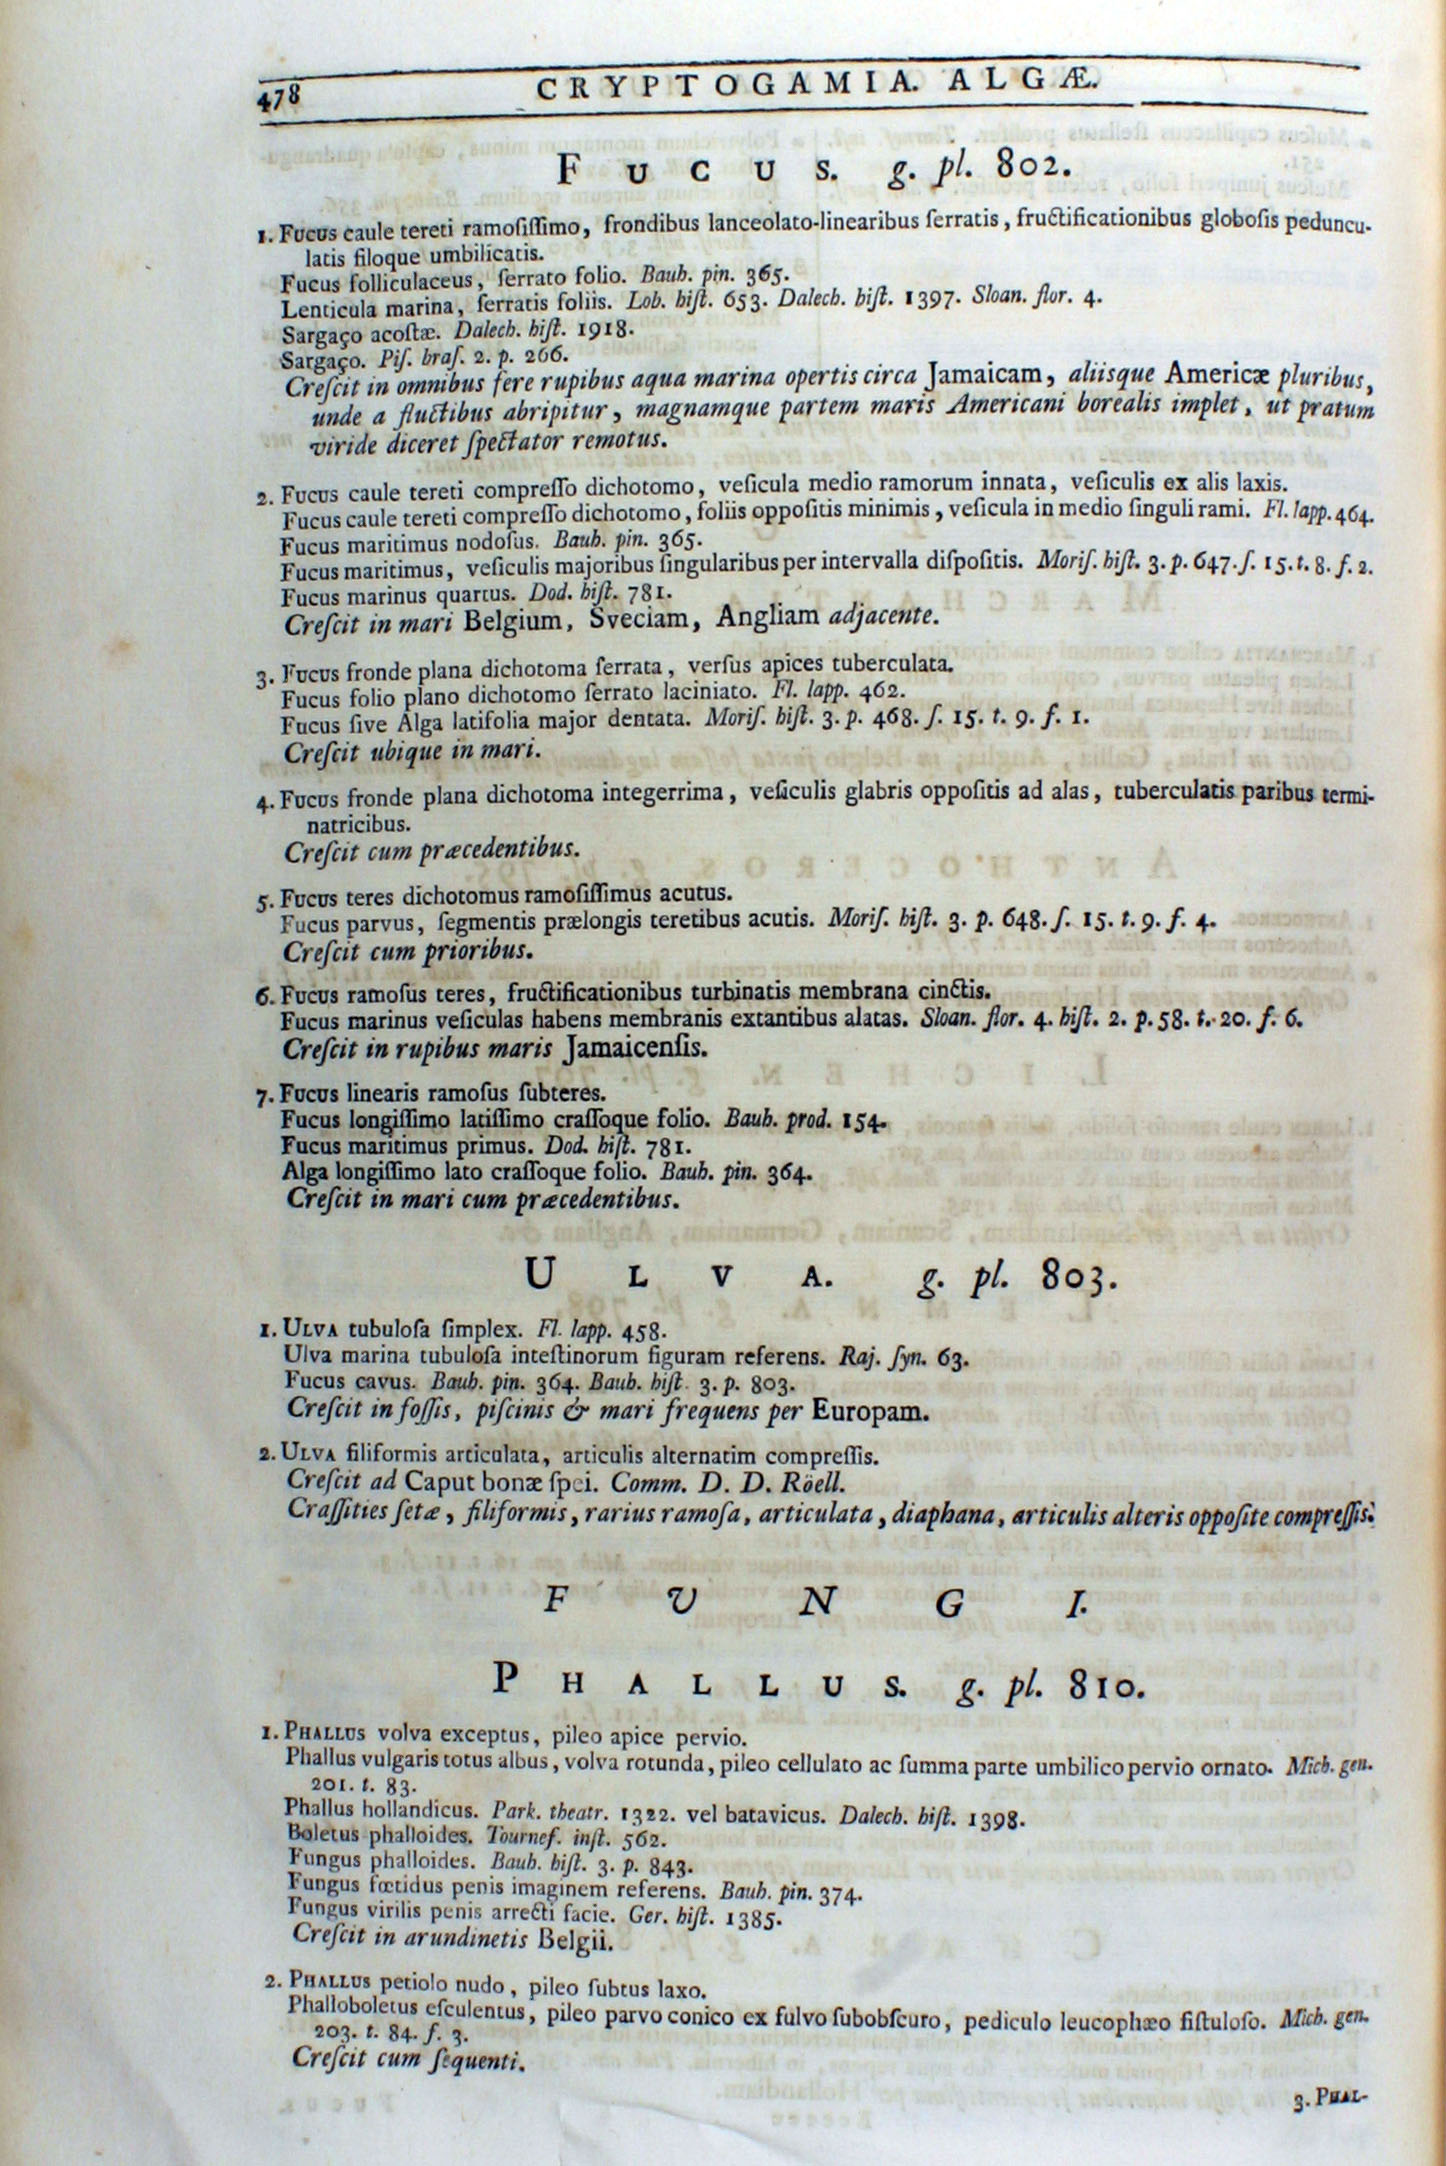 478 CRYPTOGAMIA. ALGÆ.
FUCUS. g. pl. 802.
1. Fucus caule tereti ramoſiſſimo, frondibus lanceolato-linearibus ſerratis, fructificationibus globoſis peduncu-
latis filoque umbilicatis.
Fucus folliculaceus, ſerrato folio. Bauh. pin. 365.
Lenticula marina, ſerratis foliis. Lob. hiſt. 653. Dalech. hiſt. 1397. Sloan. flor. 4.
Sargaço acoſtæ. Dalech. hiſt. 1918.
Sargaço. Piſ. braſ. 2. p. 266.
Creſcit in omnibus fere rupibus aqua marina opertis circa Jamaicam, aliisque Americæ pluribus,
unde a fluctibus abripitur, magnamque partem maris Americani borealis implet, ut pratum
viride diceret ſpectator remotus.
2. Fucus caule tereti compreſſo dichotomo, veſicula medio ramorum innata, veſiculis ex alis laxis.
Fucus caule tereti compreſſo dichotomo, foliis oppoſitis minimis, veſicula in medio ſinguli rami. Fl. lapp. 464.
Fucus maritimus nodoſus. Bauh. pin. 365.
Fucus maritimus, veſiculis majoribus ſingularibus per intervalla diſpoſitis. Moriſ. hiſt. 3. p. 647. ſ. 15. t. 8. f. 2.
Fucus marinus quartus. Dod. hiſt. 781.
Creſcit in mari Belgium, Sveciam, Angliam adjacente.
3. Fucus fronde plana dichotoma ſerrata, verſus apices tuberculata.
Fucus folio plano dichotomo ſerrato laciniato. Fl. lapp. 462.
Fucus ſive Alga latifolia major dentata. Moriſ. hiſt. 3. p. 468. ſ. 15. t. 9. f. 1.
Creſcit ubique in mari.
4. Fucus fronde plana dichotoma integerrima, veſiculis glabris oppoſitis ad alas, tuberculatis paribus termi-
natricibus.
Creſcit cum præcedentibus.
5. Fucus teres dichotomus ramoſiſſimus acutus.
Fucus parvus, ſegmentis prælongis teretibus acutis. Moriſ. hiſt. 3. p. 648. ſ. 15. t. 9. f. 4.
Creſcit cum prioribus.
6. Fucus ramoſus teres, fructificationibus turbinatis membrana cinctis.
Fucus marinus veſiculas habens membranis extantibus alatas. Sloan. flor. 4. hiſt. 2. p. 58. t. 20. f. 6.
Creſcit in rupibus maris Jamaicenſis.
7. Fucus linearis ramoſus ſubteres.
Fucus longiſſimo latiſſimo craſſoque folio. Bauh. prod. 154.
Fucus maritimus primus. Dod. hiſt. 781.
Alga longiſſimo lato craſſoque folio. Bauh. pin. 364.
Creſcit in mari cum præcedentibus.
ULVA. g. pl. 803.
1. ULVA tubuloſa ſimplex. Fl. lapp. 458.
Ulva marina tubuloſa inteſtinorum figuram referens. Raj. ſyn. 63.
Fucus cavus. Bauh. pin. 364. Bauh. hiſt. 3. p. 803.
Creſcit in foſſis, piſcinis & mari frequens per Europam.
2. ULVA filiformis articulata, articulis alternatim compreſſis.
Creſcit ad Caput bonæ ſpei. Comm. D. D. Röell.
Craſſities ſetæ, filiformis, rarius ramoſa, articulata, diaphana, articulis alteris oppoſite compreſſis.
FUNGI.
PHALLUS. g. pl. 810.
1. PHALLUS volva exceptus, pileo apice pervio.
Phallus vulgaris totus albus, volva rotunda, pileo cellulato ac ſumma parte umbilico pervio ornato. Mich. gen.
201. t. 83.
Phallus hollandicus. Park. theatr. 1322. vel batavicus. Dalech. hiſt. 1398.
Boletus phalloides. Tournef. inſt. 562.
Fungus phalloides. Bauh. hiſt. 3. p. 843.
Fungus fœtidus penis imaginem referens. Bauh. pin. 374.
Fungus virilis penis arrecti facie. Ger. hiſt. 1385.
Creſcit in arundinetis Belgii.
2. PHALLUS petiolo nudo, pileo ſubtus laxo.
Phalloboletus eſculentus, pileo parvo conico ex fulvo ſubobſcuro, pediculo leucophæo fiſtuloſo. Mich. gen.
203. t. 84. f. 3.
Creſcit cum ſequenti.
3. PHAL-